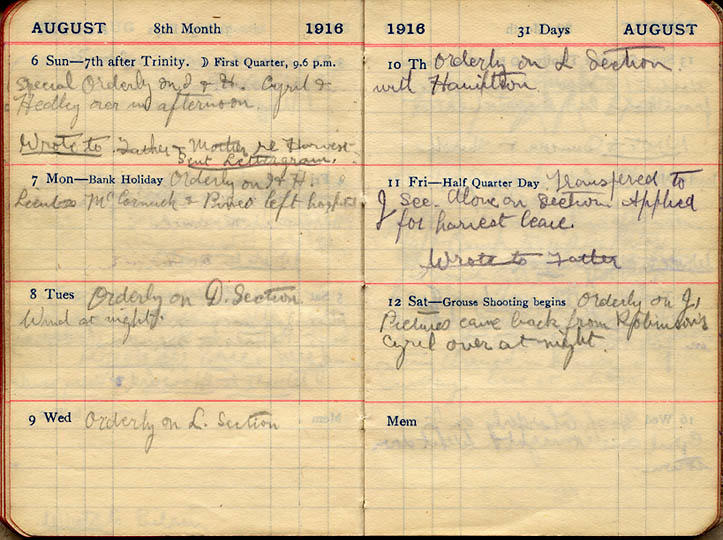 AUGUST 8th Month 1916
6 Sun—7th after Trinity. ☽ First Quarter, 9.6 p.m.
Special Orderly on J & H. Cyril &
Hedley over in afternoon.
Wrote to Father & Mother re Harvest
Sent Lettergram.
7 Mon—Bank Holiday Orderly on J & H.
McCormick & left
8 Tues Orderly on D. Section
Wind at night.
9 Wed Orderly on L. Section
1916 31 Days AUGUST
10 Th Orderly on L Section.
with Hamilton.
11 Fri—Half Quarter Day Transfered to
J Sec. Alone on Section. Applied
for harvest leave.
Wrote to Father
12 Sat—Grouse Shooting begins Orderly on J,
Pictures came back from Robinson's
Cyril over at night.
Mem